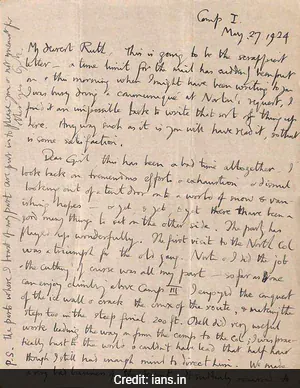 Camp I.
May 27 1924
My dearest Ruth This is going to be the scrappiest
letter – a time limit for the mail has suddenly been put
on & the morning when I might have been writing to you
I was busy doing a communiqué at Norton's request, &
find it an impossible task to write that sort of thing up
here. Any way such as it is you will have read it, so that
is some satisfaction.
Dear Girl this has been a bad time altogether. I
look back on tremendous efforts & exhaustion & dismal
looking out of a tent door onto a world of snow & van-
ishing hopes – & yet, & yet, & yet there have been a
good many things to set on the other side. The party has
played up wonderfully. The first visit to the North Col
was a triumph for the old gang. Norton & I did the job
& the cutting of course was all my part – so far as one
can enjoy climbing above Camp III I enjoyed the conquest
of the ice wall & crack the crux of the route, & making the
steps too in the steep final 200 ft. Odell did very useful
work leading the way on from the camp to the Col; I was prac-
tically bust to the world & couldn't have led that half hour
though I still had enough mind to direct him. We made
P.S. The parts where I boast of my part are put in to please you & not meant for
other eyes
Credit: ians.in